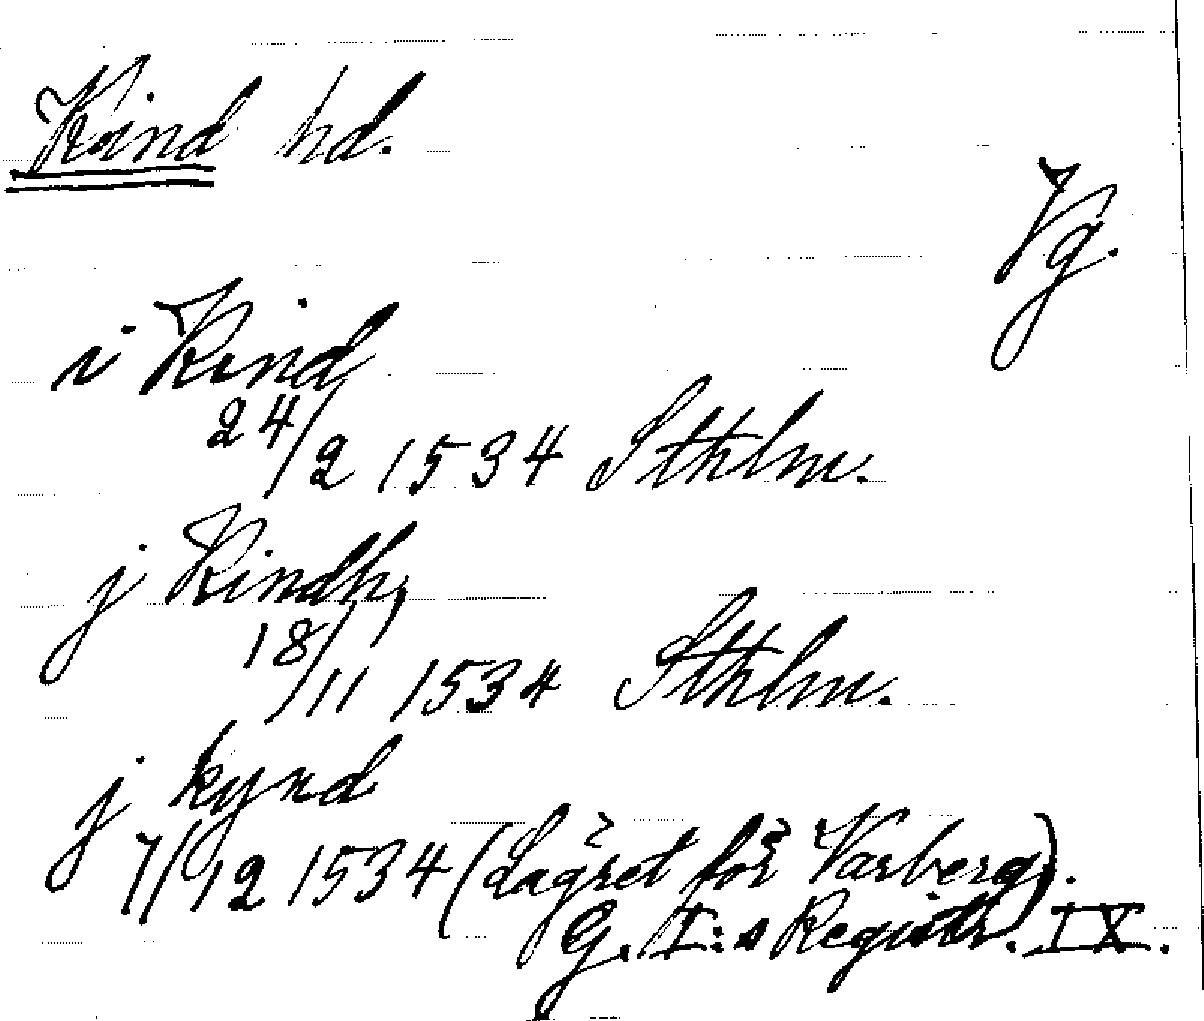 Kind hd.
Vg.
i Kind
24/2 1534 Sthlm.
j Kindh,
18/11 1534 Sthlm.
j kynd
7/12 1534 (Lägret för Varberg).
G. I:s Registr. IX.